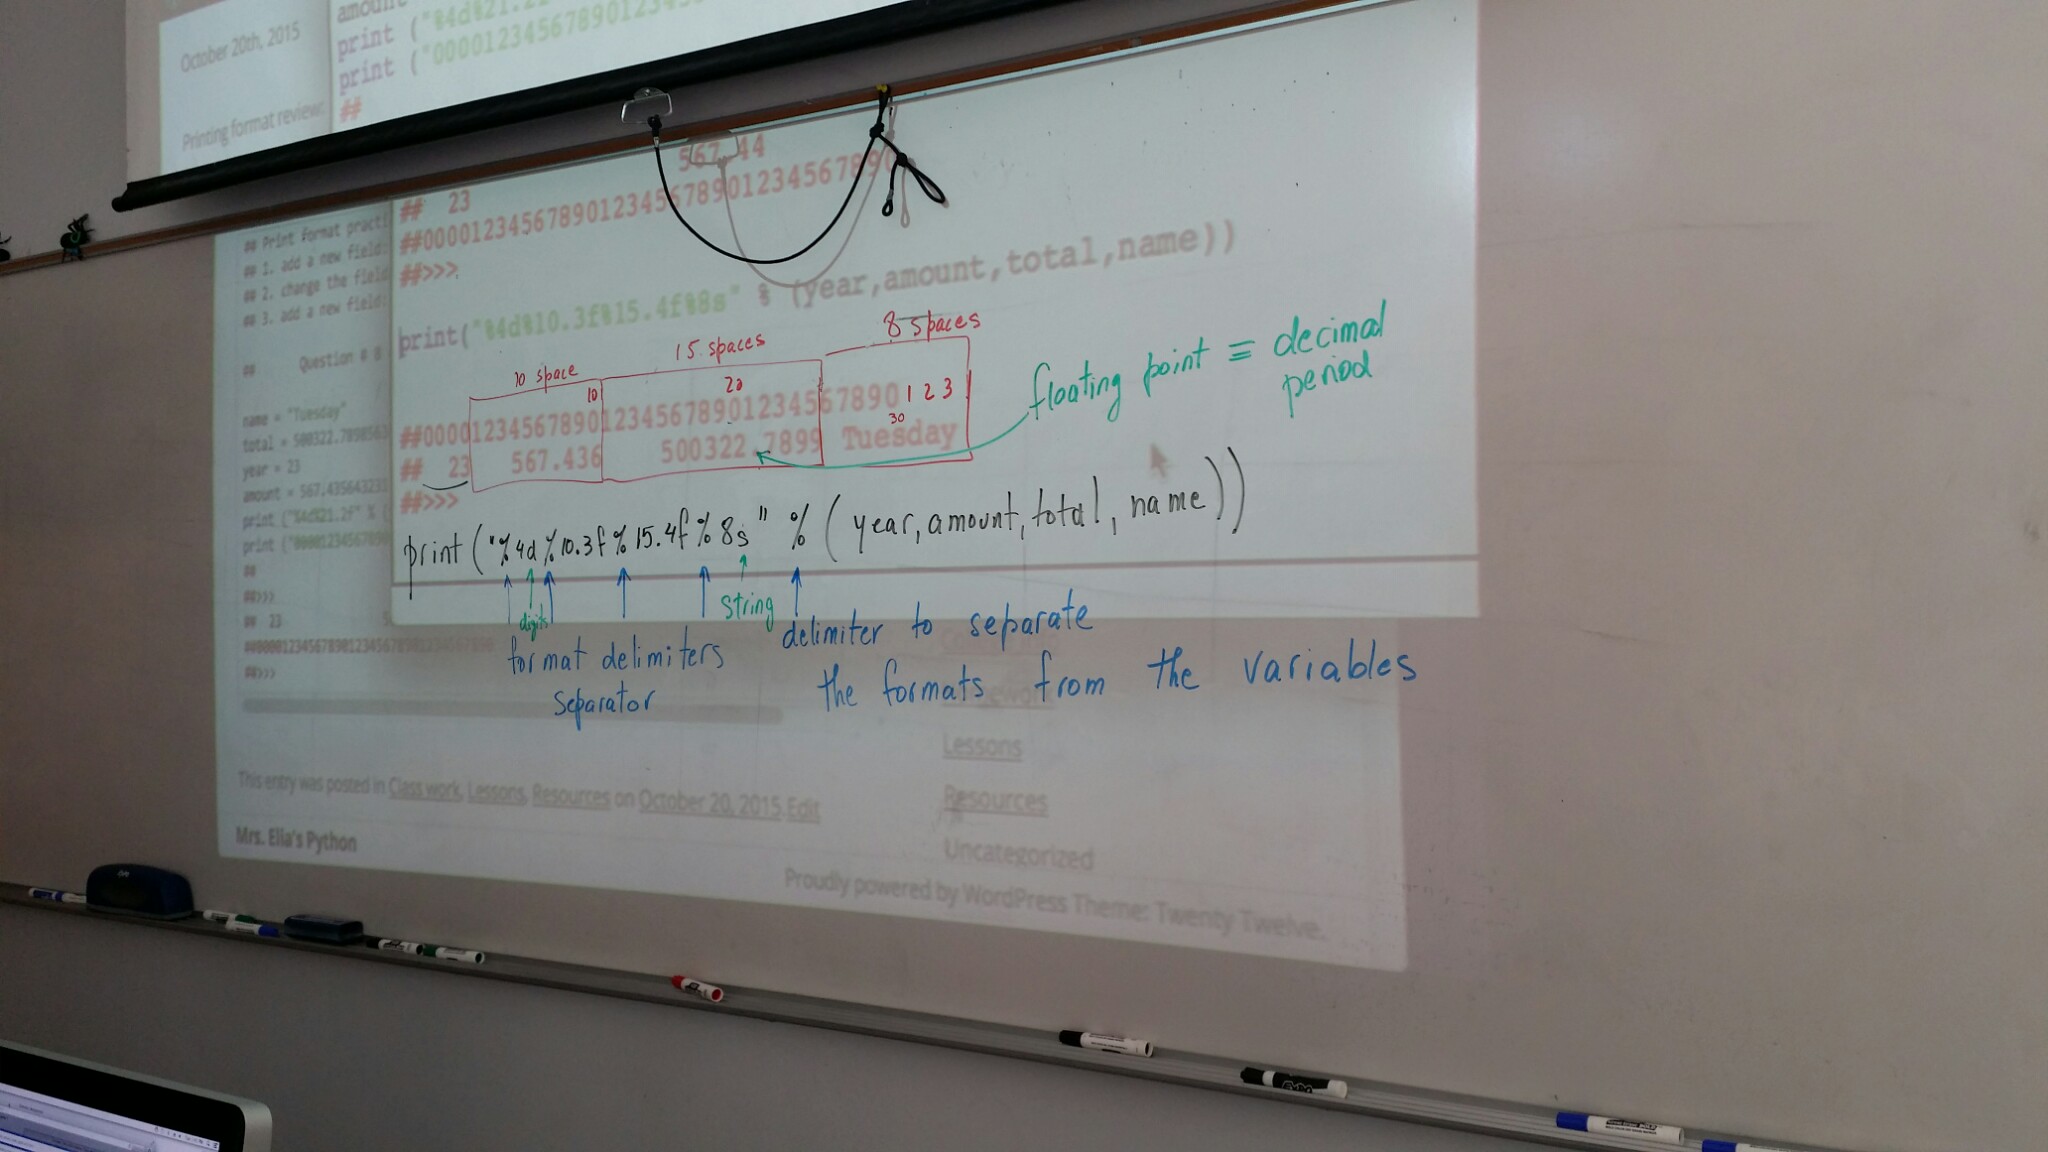 October 20th, 2015
amount
print ("%4d%21.2f
print ("0000123456789012345
##
Printing format review:
567.44
## 23
##0000123456789012345678901234567890
##>>>
print("%4d%10.3f%15.4f%8s" % (year,amount,total,name))
10 space
15 spaces
8 spaces
10
20
30
##0000123456789012345678901234567890 1 2 3
## 23 567.436 500322.7899 Tuesday
##>>>
floating point ≡ decimal
period
print ("%4d%10.3f%15.4f%8s" % (year,amount,total,name))
digits
string
format delimiters
separator
delimiter to separate
the formats from the variables
## Print format practi
## 1. add a new field
## 2. change the field
## 3. add a new field
## Question # 8
name = "Tuesday"
year = 23
print ("%4d%21.2f" %
##
##>>>
## 23
##>>>
Lessons
Resources
Uncategorized
This entry was posted in Class work, Lessons, Resources on October 20, 2015 Edit
Mrs. Elia's Python
Proudly powered by WordPress Theme: Twenty Twelve.
EXPO